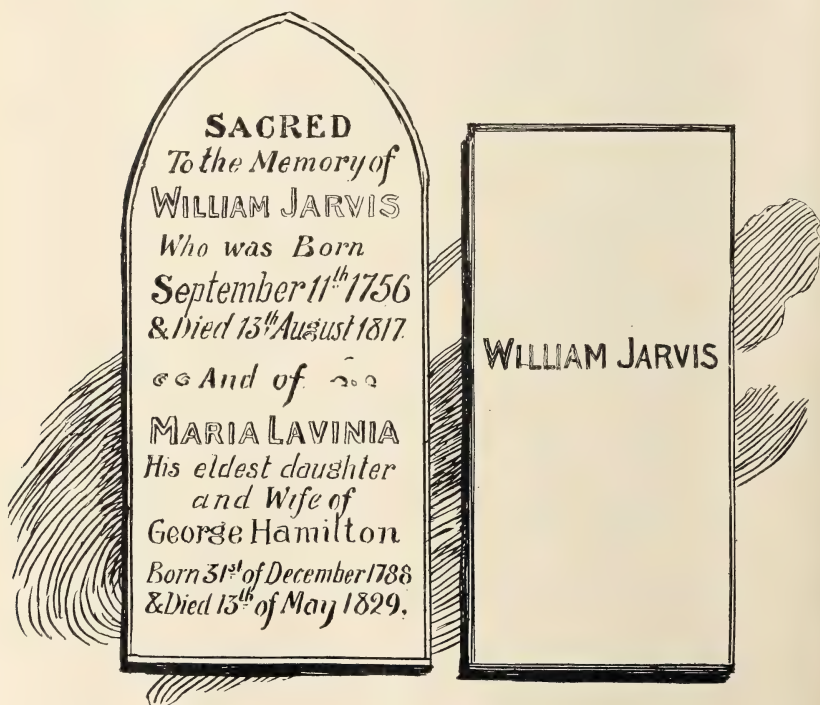 SACRED
To the Memory of
WILLIAM JARVIS
Who was Born
September 11th 1756
& Died 13th August 1817.
And of
MARIA LAVINIA
His eldest daughter
and Wife of
George Hamilton
Born 31st of December 1788
& Died 13th of May 1829.
WILLIAM JARVIS